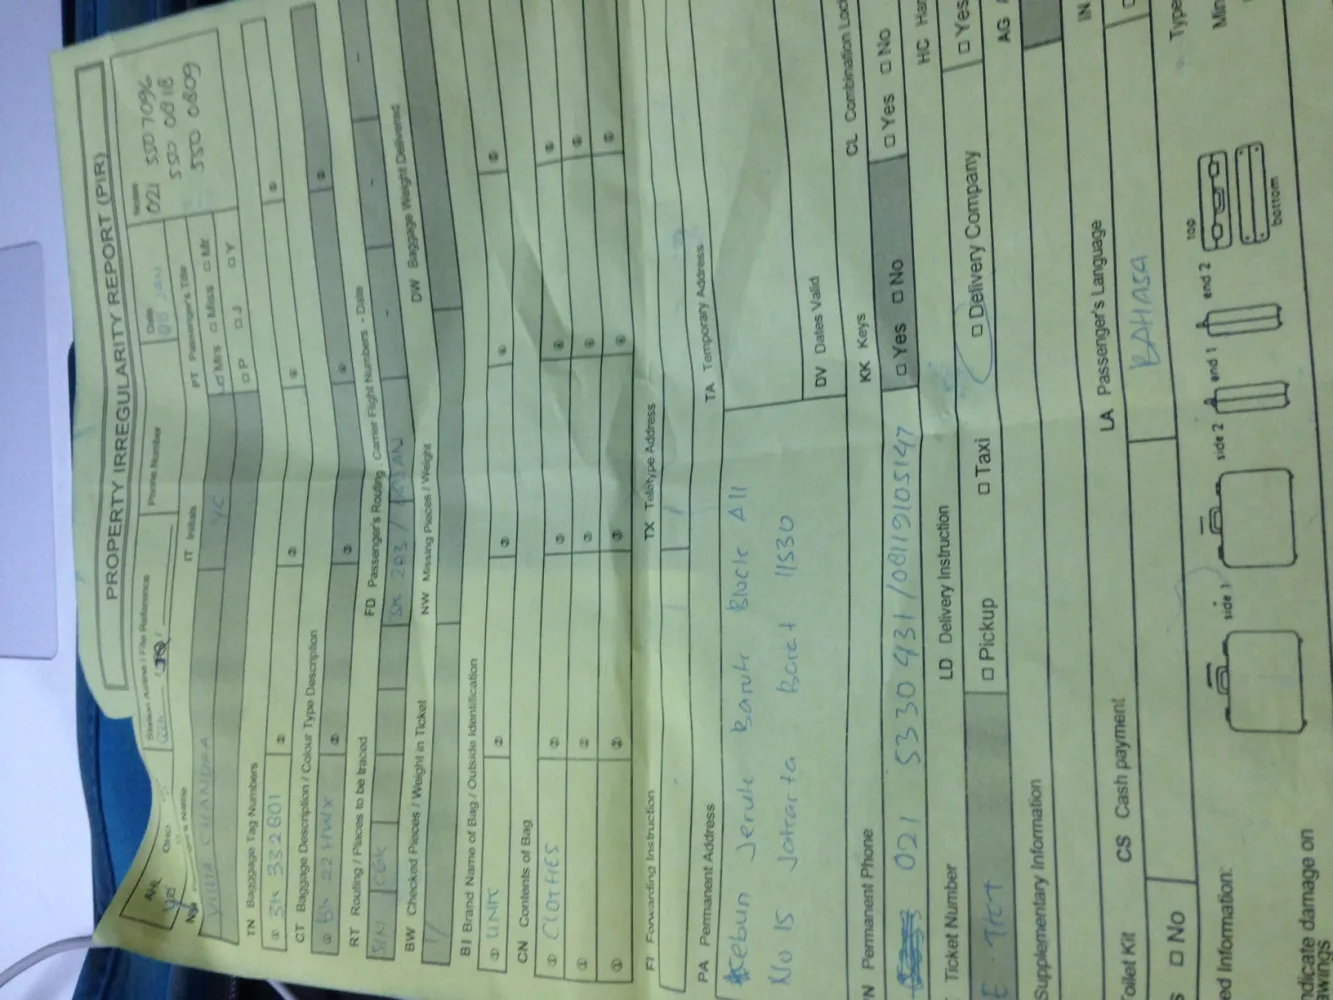 PROPERTY IRREGULARITY REPORT (PIR)
AHL
Station Airline / File Reference
Phone Number
Date
08 JAN
Notes
021 550 7096
550 0818
550 0809
Name
CHANDRA
IT Initials
YC
PT Passenger's Title
Mrs □ Miss □ Mr
□ P □ J □ Y
TN Baggage Tag Numbers
① 332801 ② ② ② ②
CT Baggage Description / Colour Type Description
① BK 22 HWX ② ② ② ②
RT Routing / Places to be traced
SIN CGK
FD Passenger's Routing Carrier Flight Numbers - Date
203 / JAN
BW Checked Pieces / Weight in Ticket
NW Missing Pieces / Weight
DW Baggage Weight Delivered
BI Brand Name of Bag / Outside Identification
① UNK ② ② ② ②
CN Contents of Bag
① CLOTHES ② ② ② ②
FI Forwarding Instruction
TX Teletype Address
PA Permanent Address
TA Temporary Address
Kebun Jeruk Baruk Block A11
No 15 Jakarta Barat 11530
DV Dates Valid
Permanent Phone
021 5330431 / 08119105147
KK Keys
□ Yes □ No
CL Combination Lock
□ Yes □ No
Ticket Number
E TKT
LD Delivery Instruction
□ Pickup □ Taxi □ Delivery Company
HC
□ Yes
Supplementary Information
AG
IN
Toilet Kit
□ No
CS Cash payment
LA Passenger's Language
BAHASA
Type
Information:
indicate damage on
side 1
side 2
end 1
end 2
top
bottom